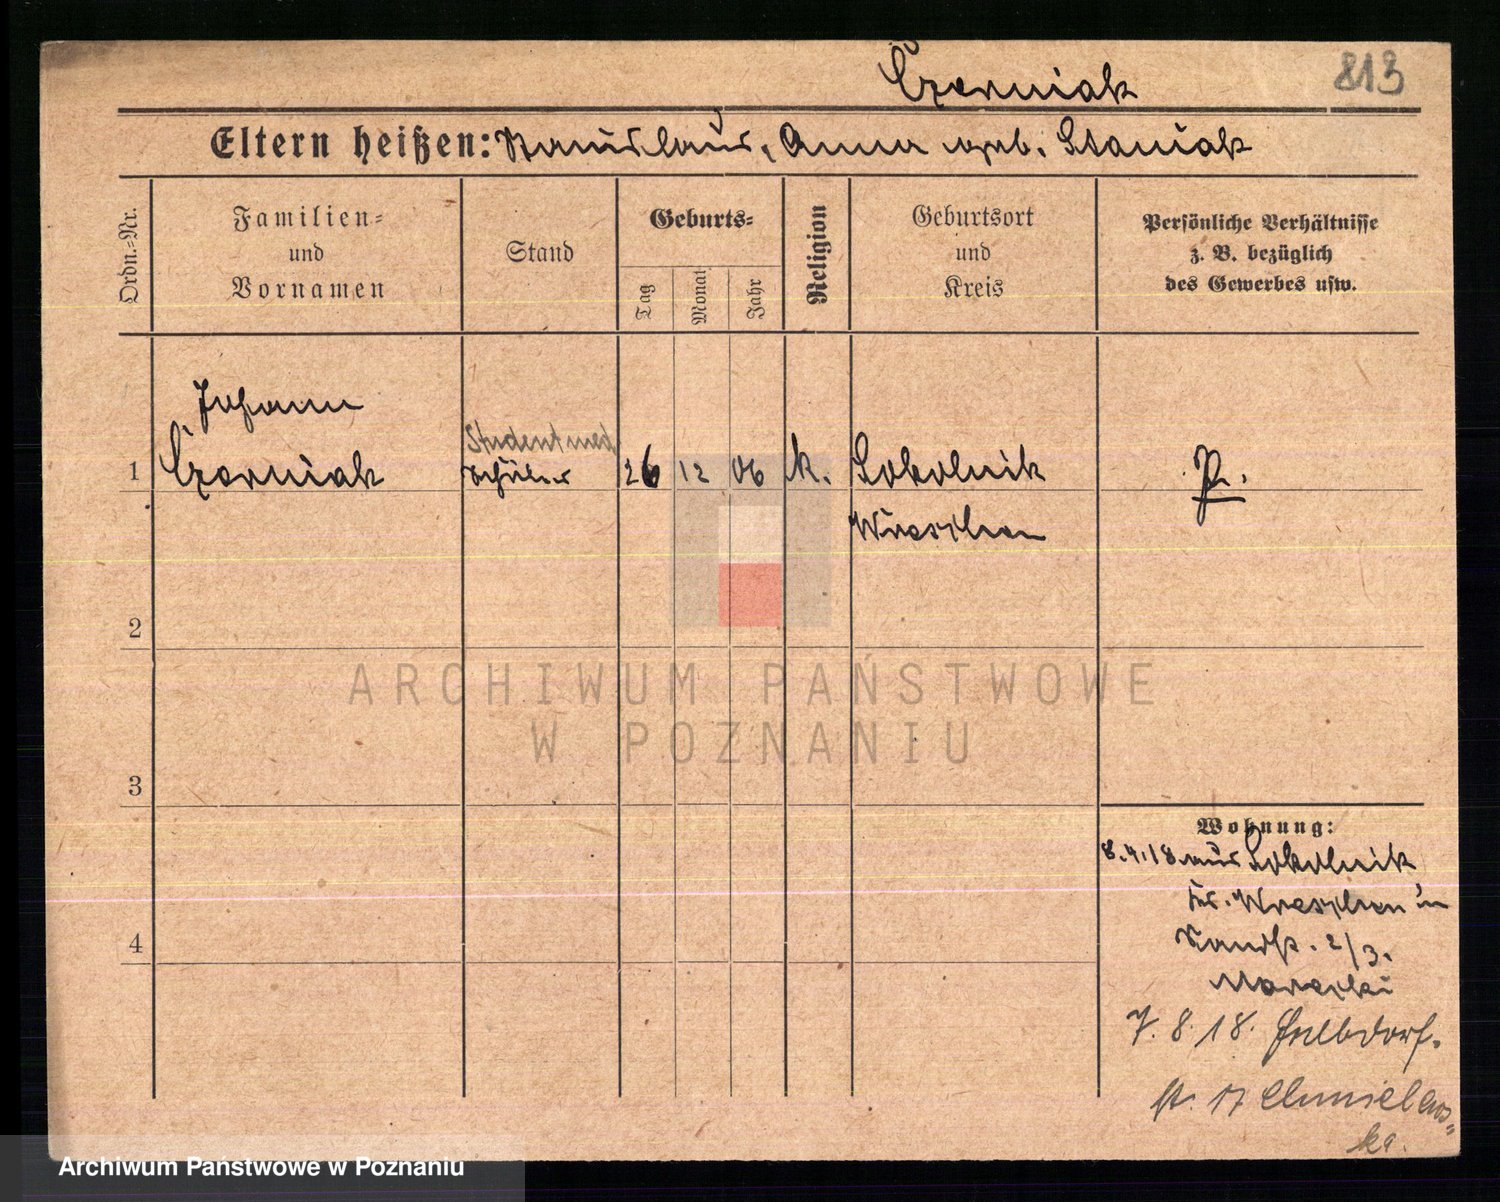 Czerniak
813
Eltern heißen: Stanislaus, Anna geb. Staniak
Ordn.=Nr.
Familien=
und
Vornamen
Stand
Geburts=
Tag
Monat
Jahr
Religion
Geburtsort
und
Kreis
Persönliche Verhältnisse
z. B. bezüglich
des Gewerbes usw.
Johann
Student med
1 Czerniak Schüler 26 12 06 k. Sokolnik P.
Wreschen
2
3
4
Wohnung:
8.4.18 aus Sokolnik
Kr. Wreschen in
2/3.
7.8.18.
str. 17
ARCHIWUM PAŃSTWOWE
W POZNANIU
Archiwum Państwowe w Poznaniu